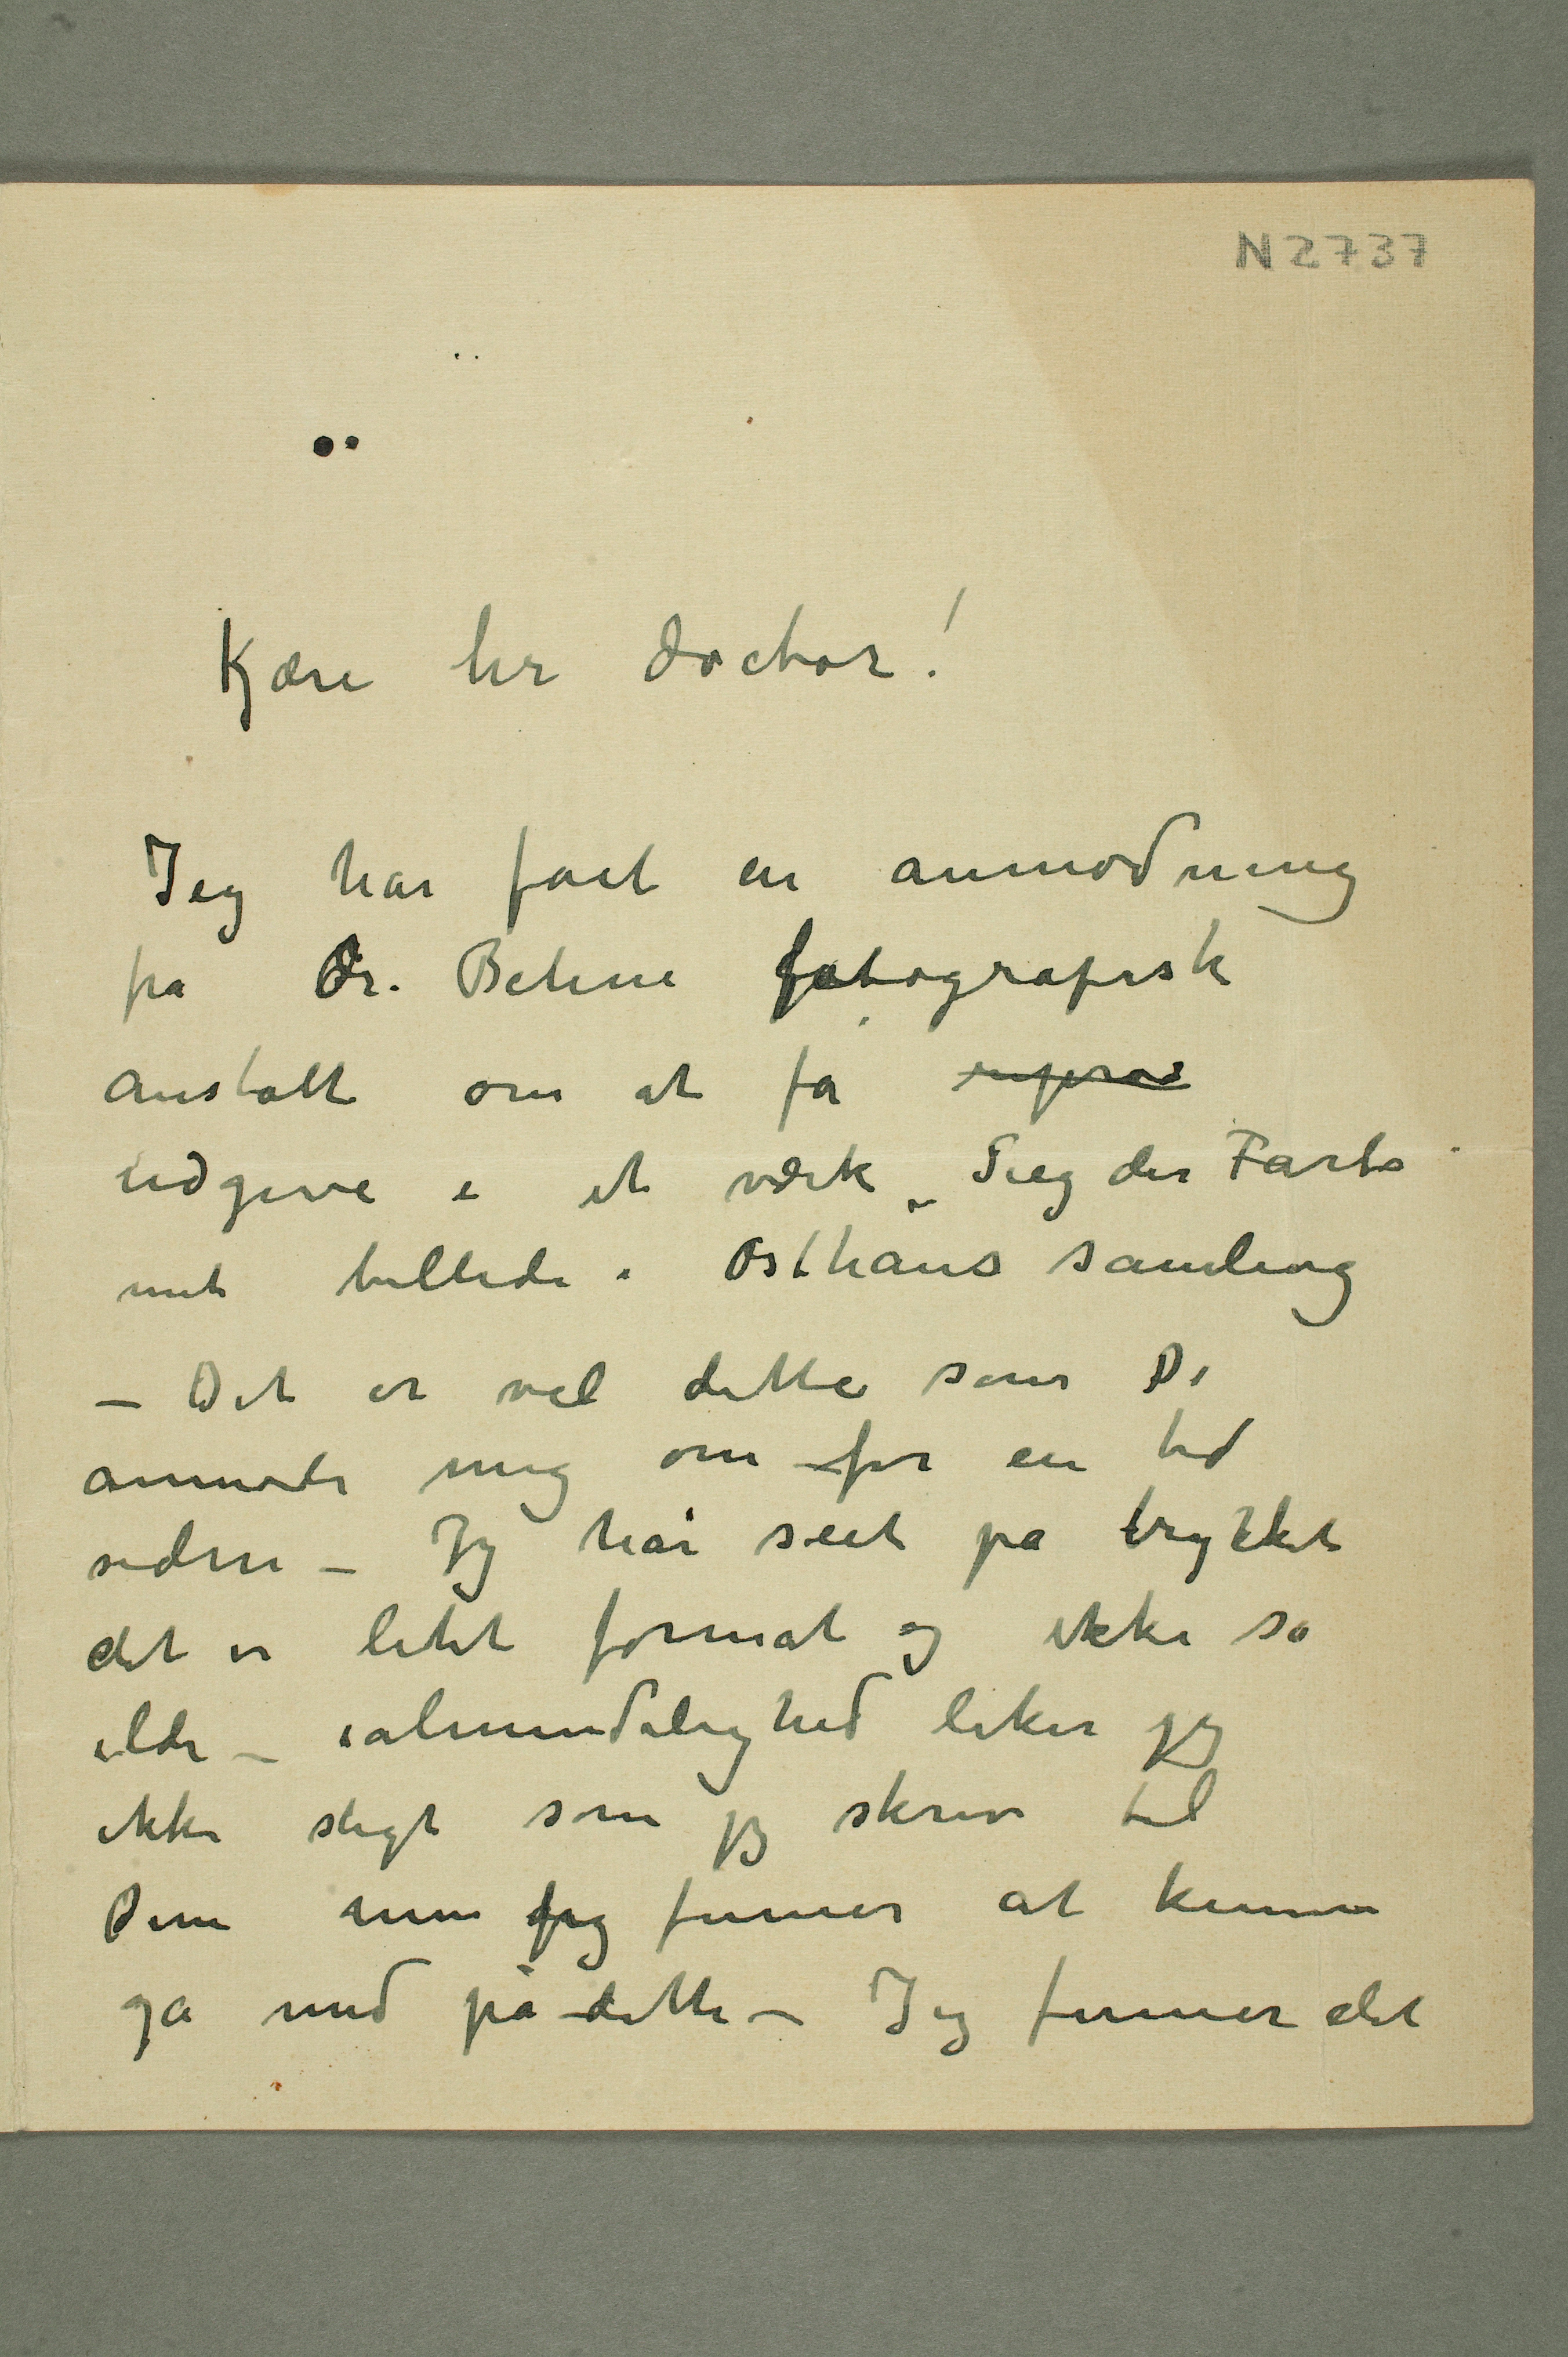 N 2737
Kjære hr doctor!
Jeg har fåt en anmodning
fra Dr. Behne fotografisk
anstalt om at få repro
udgive i et værk „Sieg der Farbe
mit billede i Osthaus samling
– Det er vel dette som De
anmodet mig om for en tid
siden – Jeg har seet på trykket
det er litet format og ikke så
ilde – ialmindelighed liker jeg
ikke sligt som jeg skrev til
Dem men jeg finner at kunne
gå med på dette – Jeg finner det